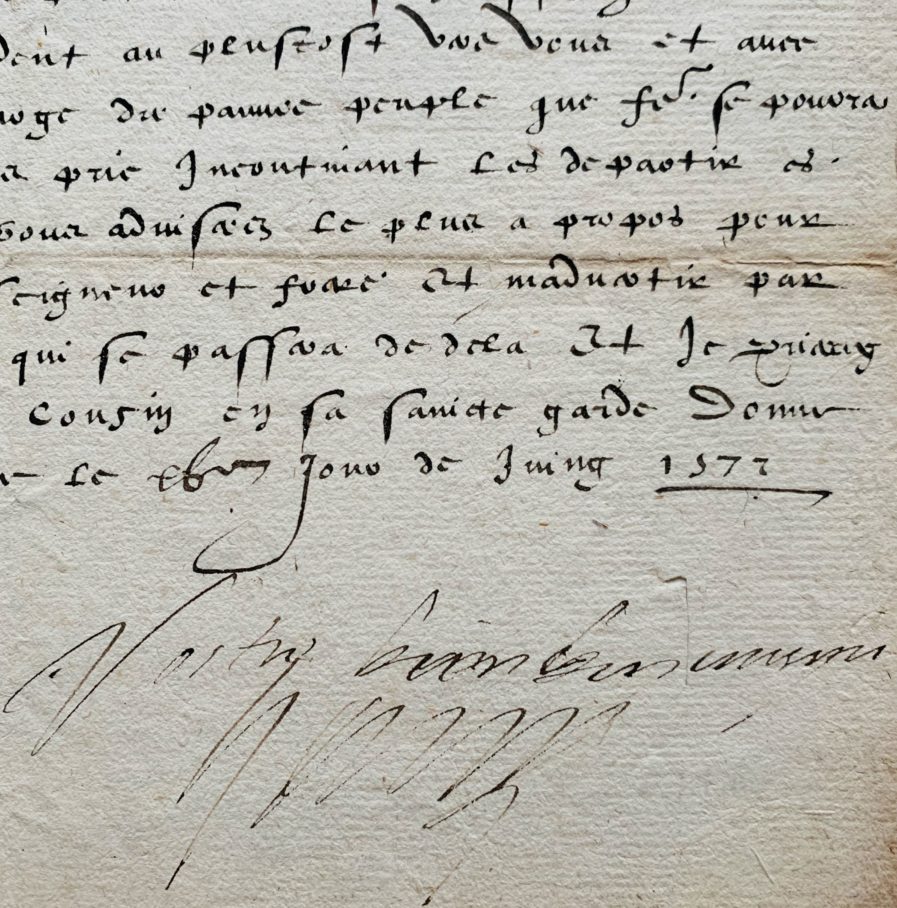 au plustost vers vous et avec
du pauvre peuple que fe.^r se pouvra
prie Incontinant les departir es
vous adviserez le plus a propos pour
seigneur et frere Et madvertir par
qui se passera de dela Et Je prieray
Cousin en sa saincte garde Donne
le xb^en Jour de Juing 1577
Vostre bien bon